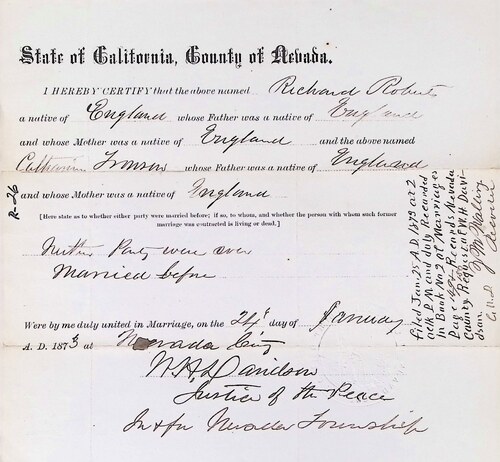 State of California, County of Nevada.
I HEREBY CERTIFY that the above named Richard Roberts
a native of England whose Father was a native of England
and whose Mother was a native of England and the above named
whose Father was a native of England
and whose Mother was a native of England
[Here state as to whether either party were married before; if so, to whom, and whether the person with whom such former
marriage was contracted is living or dead.]
Neither Party were ever
Married before
Were by me duly united in Marriage, on the 24th day of January
A. D. 1873 at Nevada City
W. H. Davidson
Justice of the Peace
In & for Nevada Township
R-26
Filed Jan. 25 A.D. 1873 at 2
oclk P.M. and duly Recorded
in Book No. 2 of Marriages
Page Records Nevada
County Request of W.H. Davi-
dson.
Recorder